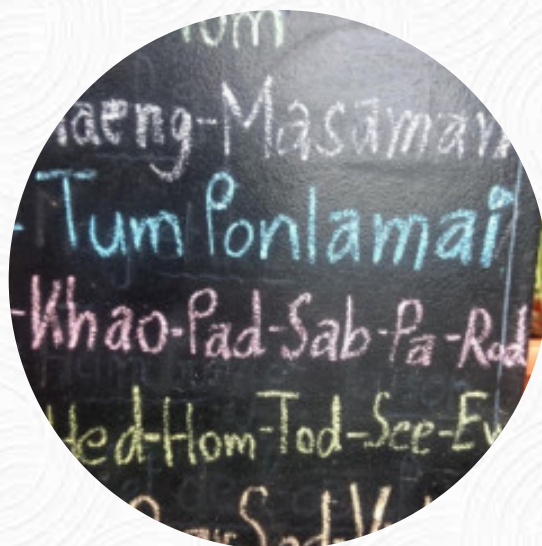 -Masaman
- Tum Ponlamai
-Khao-Pad-Sab-Pa-Rod
Hed-Hom-Tod-See-Ew
Sod-